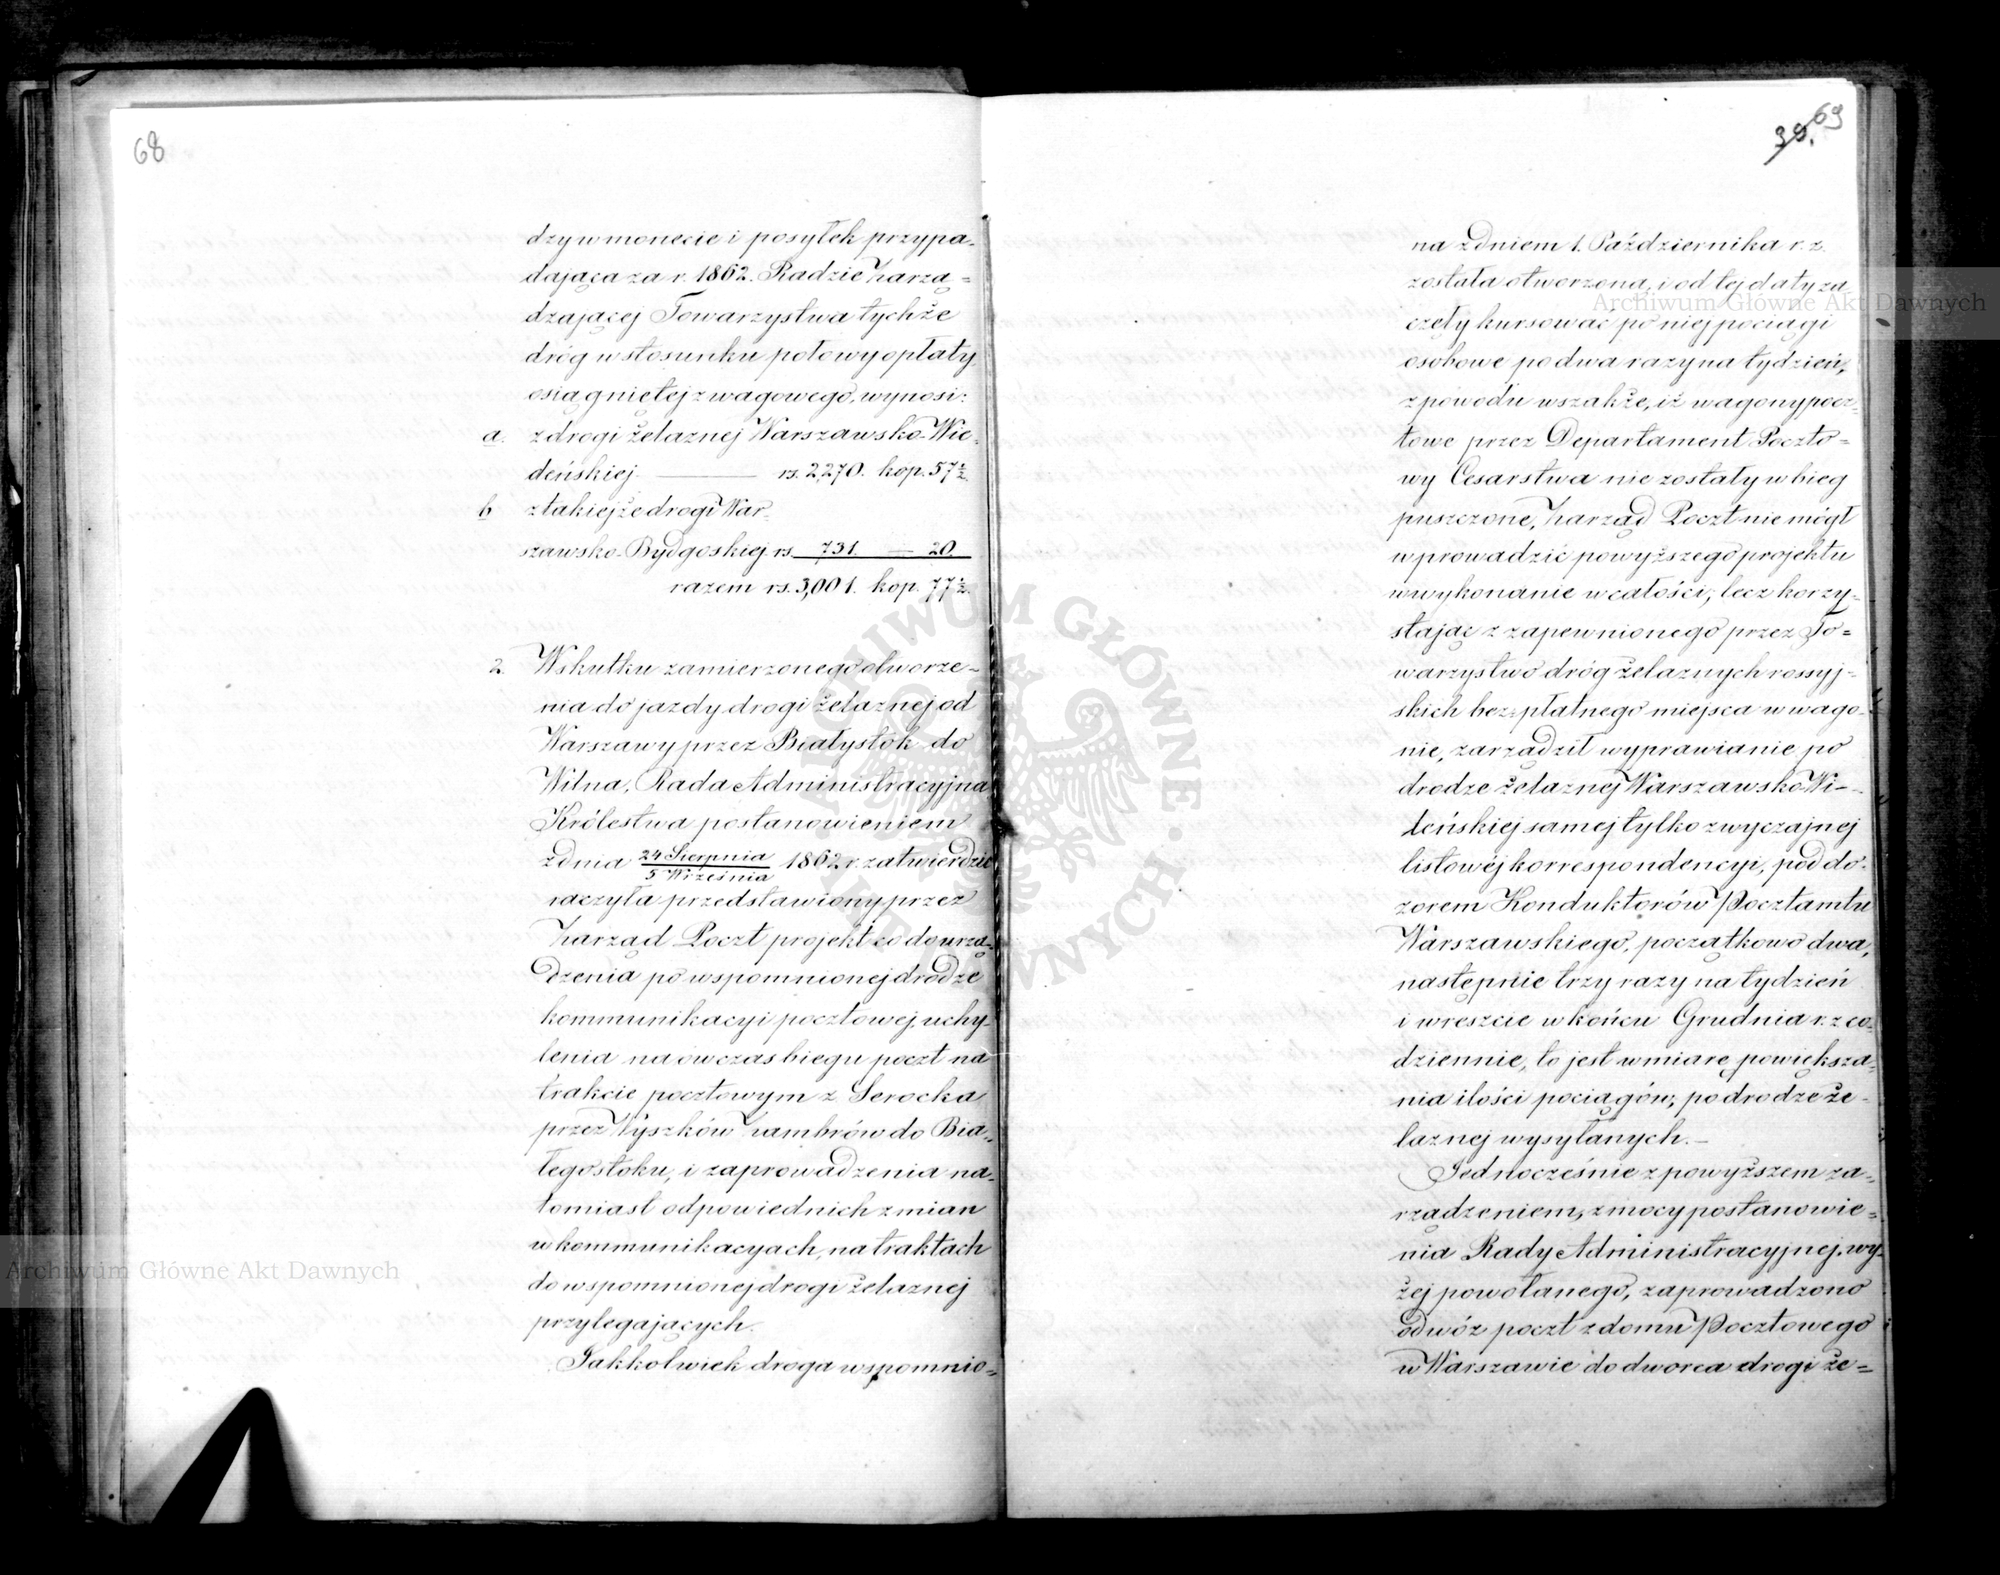 68
dzy w monecie i posyłek przypa-
dająca za r. 1862. Radzie Zarzą=
dzającej Towarzystwa tychże
dróg w stosunku połowy opłaty
osiągniętej z wagowego, wynosi:
a. z drogi żelaznej Warszawsko-Wie-
deńskiej ——— rs. 2,270. kop. 57½
b z takiejże drogi War-
szawsko-Bydgoskiej rs. 731. — 20.
razem rs. 3,001. kop. 77½.
2. Wskutku zamierzonego otworze-
nia do jazdy drogi żelaznej od
Warszawy przez Białystok do
Wilna, Rada Administracyjna
Królestwa postanowieniem
z dnia 24 Sierpnia/5 Września 1862 r. zatwierdzić
raczyła przedstawiony przez
Zarząd Poczt projekt co do urzą-
dzenia po wspomnionej drodze
kommunikacyi pocztowej, uchy-
lenia naówczas biegu poczt na
trakcie pocztowym z Serocka
przez Wyszków Zambrów do Bia-
łegostoku, i zaprowadzenia na-
tomiast odpowiednich zmian
w kommunikacyach, na traktach
do wspomnionej drogi żelaznej
przylegających.
Jakkolwiek droga wspomnio=
69
39.
na z dniem 1. Października r. z.
została otworzona, i od tej daty za
częły kursować po niej pociągi
osobowe po dwa razy na tydzień,
z powodu wszakże, iż wagony pocz-
towe przez Departament Poczto=
wy Cesarstwa nie zostały w bieg
puszczone, Zarząd Poczt nie mógł
wprowadzić powyższego projektu
w wykonanie w całości, lecz korzy-
stając z zapewnionego przez To=
warzystwo dróg żelaznych rossyj-
skich bezpłatnego miejsca w wago-
nie, zarządził wyprawianie po
drodze żelaznej Warszawsko Wi-
leńskiej samej tylko zwyczajnej
listowéj korrespondencyi, pod do-
zorem Konduktorów Pocztamtu
Warszawskiego, początkowo dwa,
następnie trzy razy na tydzień
i wreszcie w końcu Grudnia r. z co-
dziennie, to jest w miarę powiększa-
nia ilości pociągów, po drodze że-
laznej wysyłanych. —
Jednocześnie z powyższem za-
rządzeniem, z mocy postanowie=
nia Rady Administracyjnej wy-
żej powołanego, zaprowadzono
odwóz poczt z domu Pocztowego
w Warszawie do dworca drogi że=
Archiwum Główne Akt Dawnych
Archiwum Główne Akt Dawnych
ARCHIWUM GŁÓWNE AKT DAWNYCH